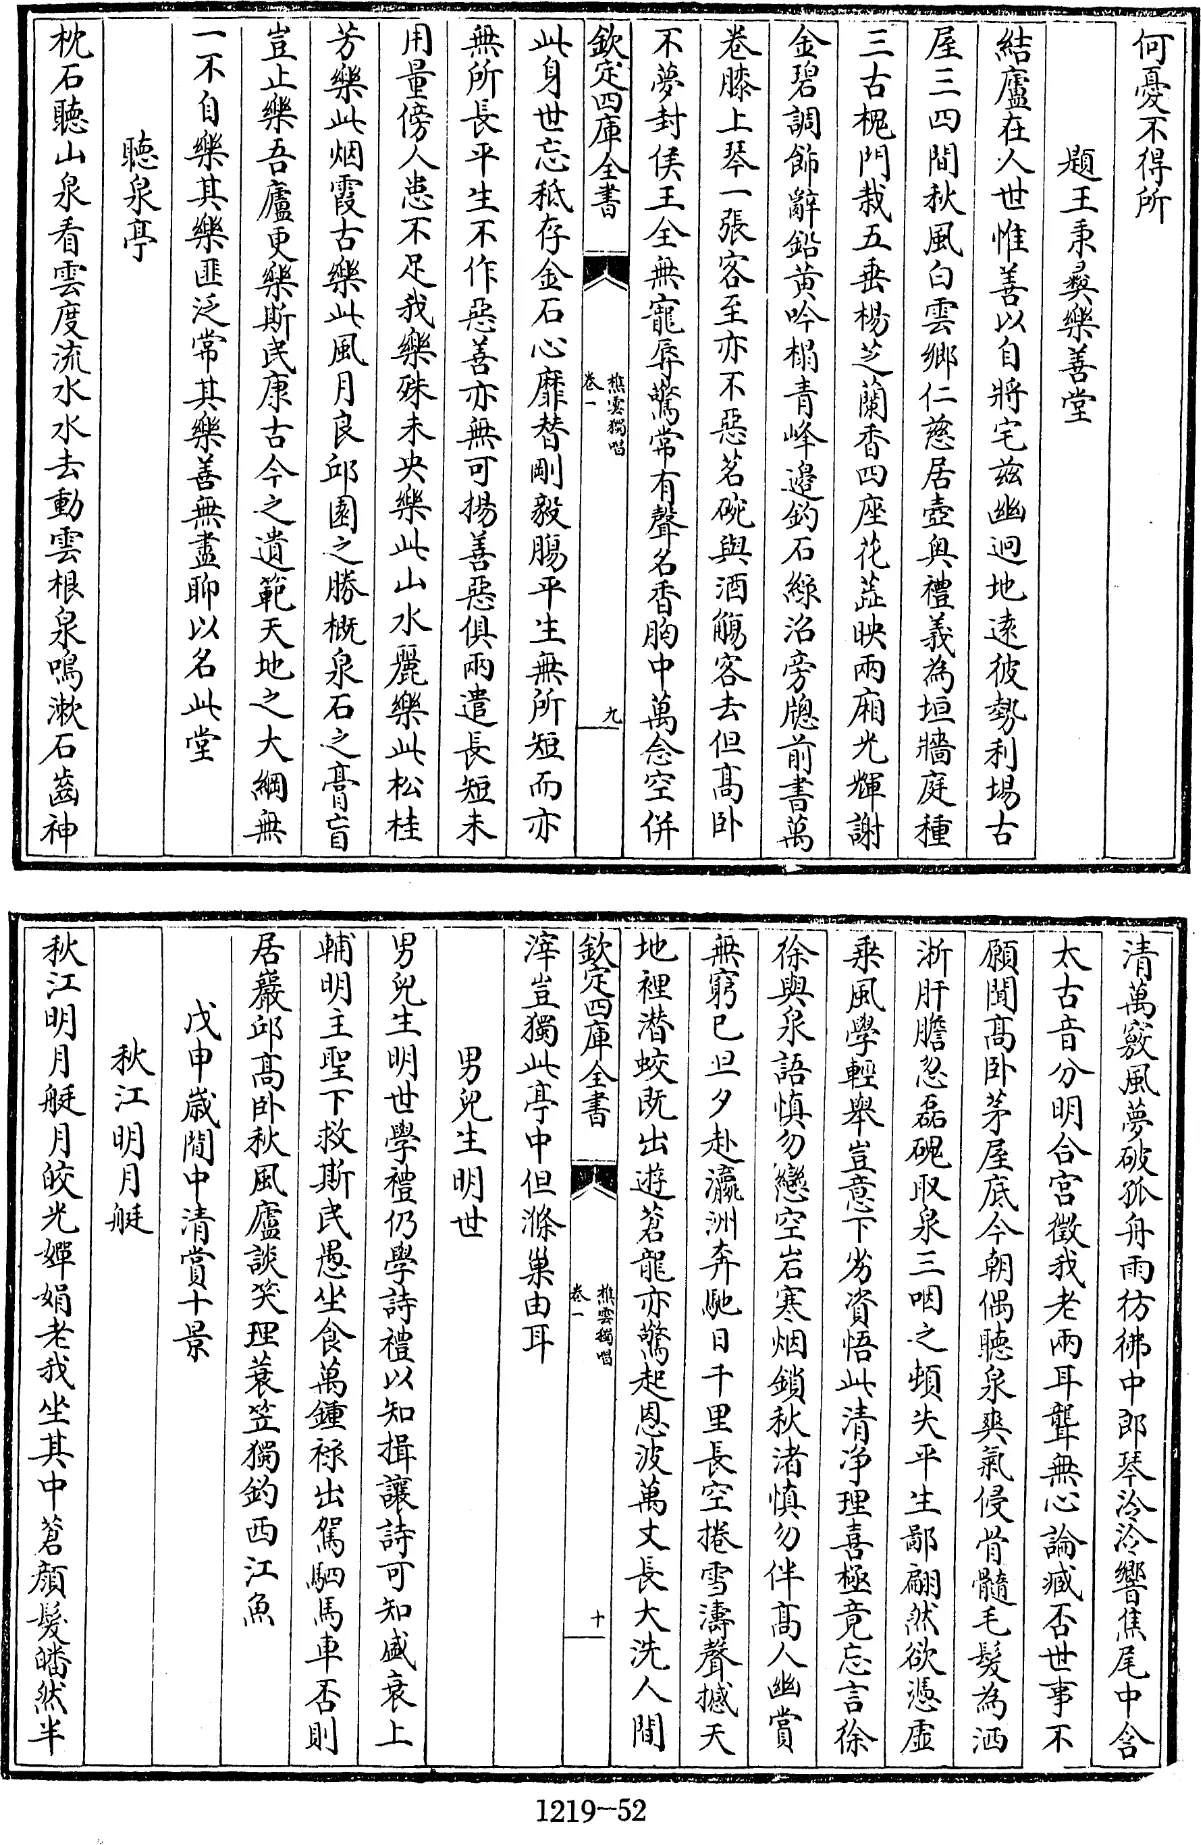 何憂不得所
題王秉彛樂善堂
結廬在人世惟善以自將宅兹幽迥地逺彼勢利塲古
屋三四間秋風白雲鄉仁慈居壼奥禮義為垣牆庭種
三古槐門栽五垂楊芝蘭香四座花蕋映兩廂光輝謝
金碧調飾辭鉛黄吟榻青峰邉釣石緑沼旁牕前書萬
卷膝上琴一張客至亦不惡茗碗與酒觴客去但髙卧
不夢封侯王全無寵辱驚常有聲名香胸中萬念空併
欽定四庫全書
樵雲獨唱
卷一
九
此身世忘秪存金石心靡替剛毅腸平生無所短而亦
無所長平生不作惡善亦無可揚善惡俱兩遣長短未
用量傍人患不足我樂殊未央樂此山水麗樂此松桂
芳樂此烟霞古樂此風月良邱園之勝概泉石之膏肓
豈止樂吾廬更樂斯民康古今之遺範天地之大綱無
一不自樂其樂匪泛常其樂善無盡聊以名此堂
聴泉亭
枕石聴山泉看雲度流水水去動雲根泉鳴漱石齒神
清萬竅風夢破孤舟雨彷彿中郎琴泠泠響焦尾中含
太古音分明合宫徵我老兩耳聾無心論臧否世事不
願聞髙卧茅屋底今朝偶聴泉爽氣侵骨髓毛髮為洒
淅肝膽忽磊磈取泉三咽之頓失平生鄙翩然欲憑虚
乘風學輕舉豈意下劣資悟此清净理喜極竟忘言徐
徐與泉語慎勿戀空岩寒烟鎖秋渚慎勿伴髙人幽賞
無窮已旦夕赴瀛洲奔馳日千里長空捲雪濤聲撼天
地裡潜蛟既出遊蒼龍亦驚起恩波萬丈長大洗人間
欽定四庫全書
樵雲獨唱
卷一
十
滓豈獨此亭中但滌巢由耳
男兒生明世
男兒生明世學禮仍學詩禮以知揖讓詩可知盛衰上
輔明主聖下救斯民愚坐食萬鍾禄出駕駟馬車否則
居巖邱髙卧秋風廬談笑理蓑笠獨釣西江魚
戊申嵗閒中清賞十景
秋江明月艇
秋江明月艇月皎光嬋娟老我坐其中蒼顔髮皤然半
1219-52